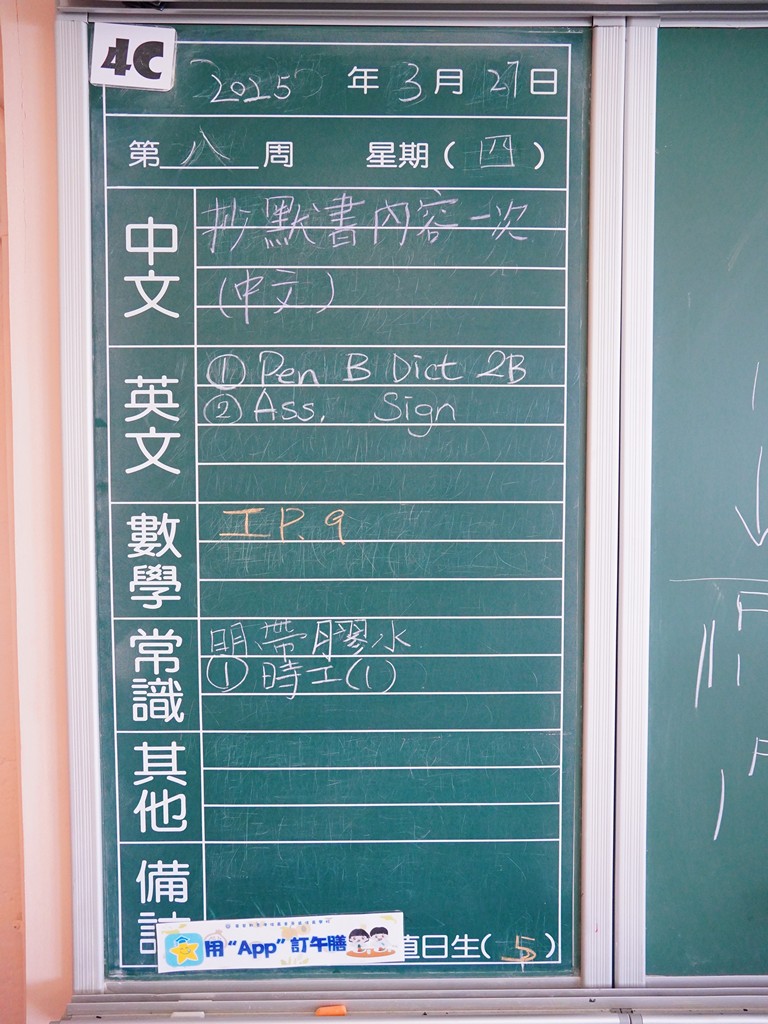 4C
2025 年 3 月 27 日
第 八 周 星期 ( 四 )
中文
抄默書內容一次
(中文)
英文
① Pen B Dict 2B
② Ass. Sign
數學
工 P. 9
常識
明帶膠水
① 時工(1)
其他
備
用“App”訂午膳
直日生( 5 )